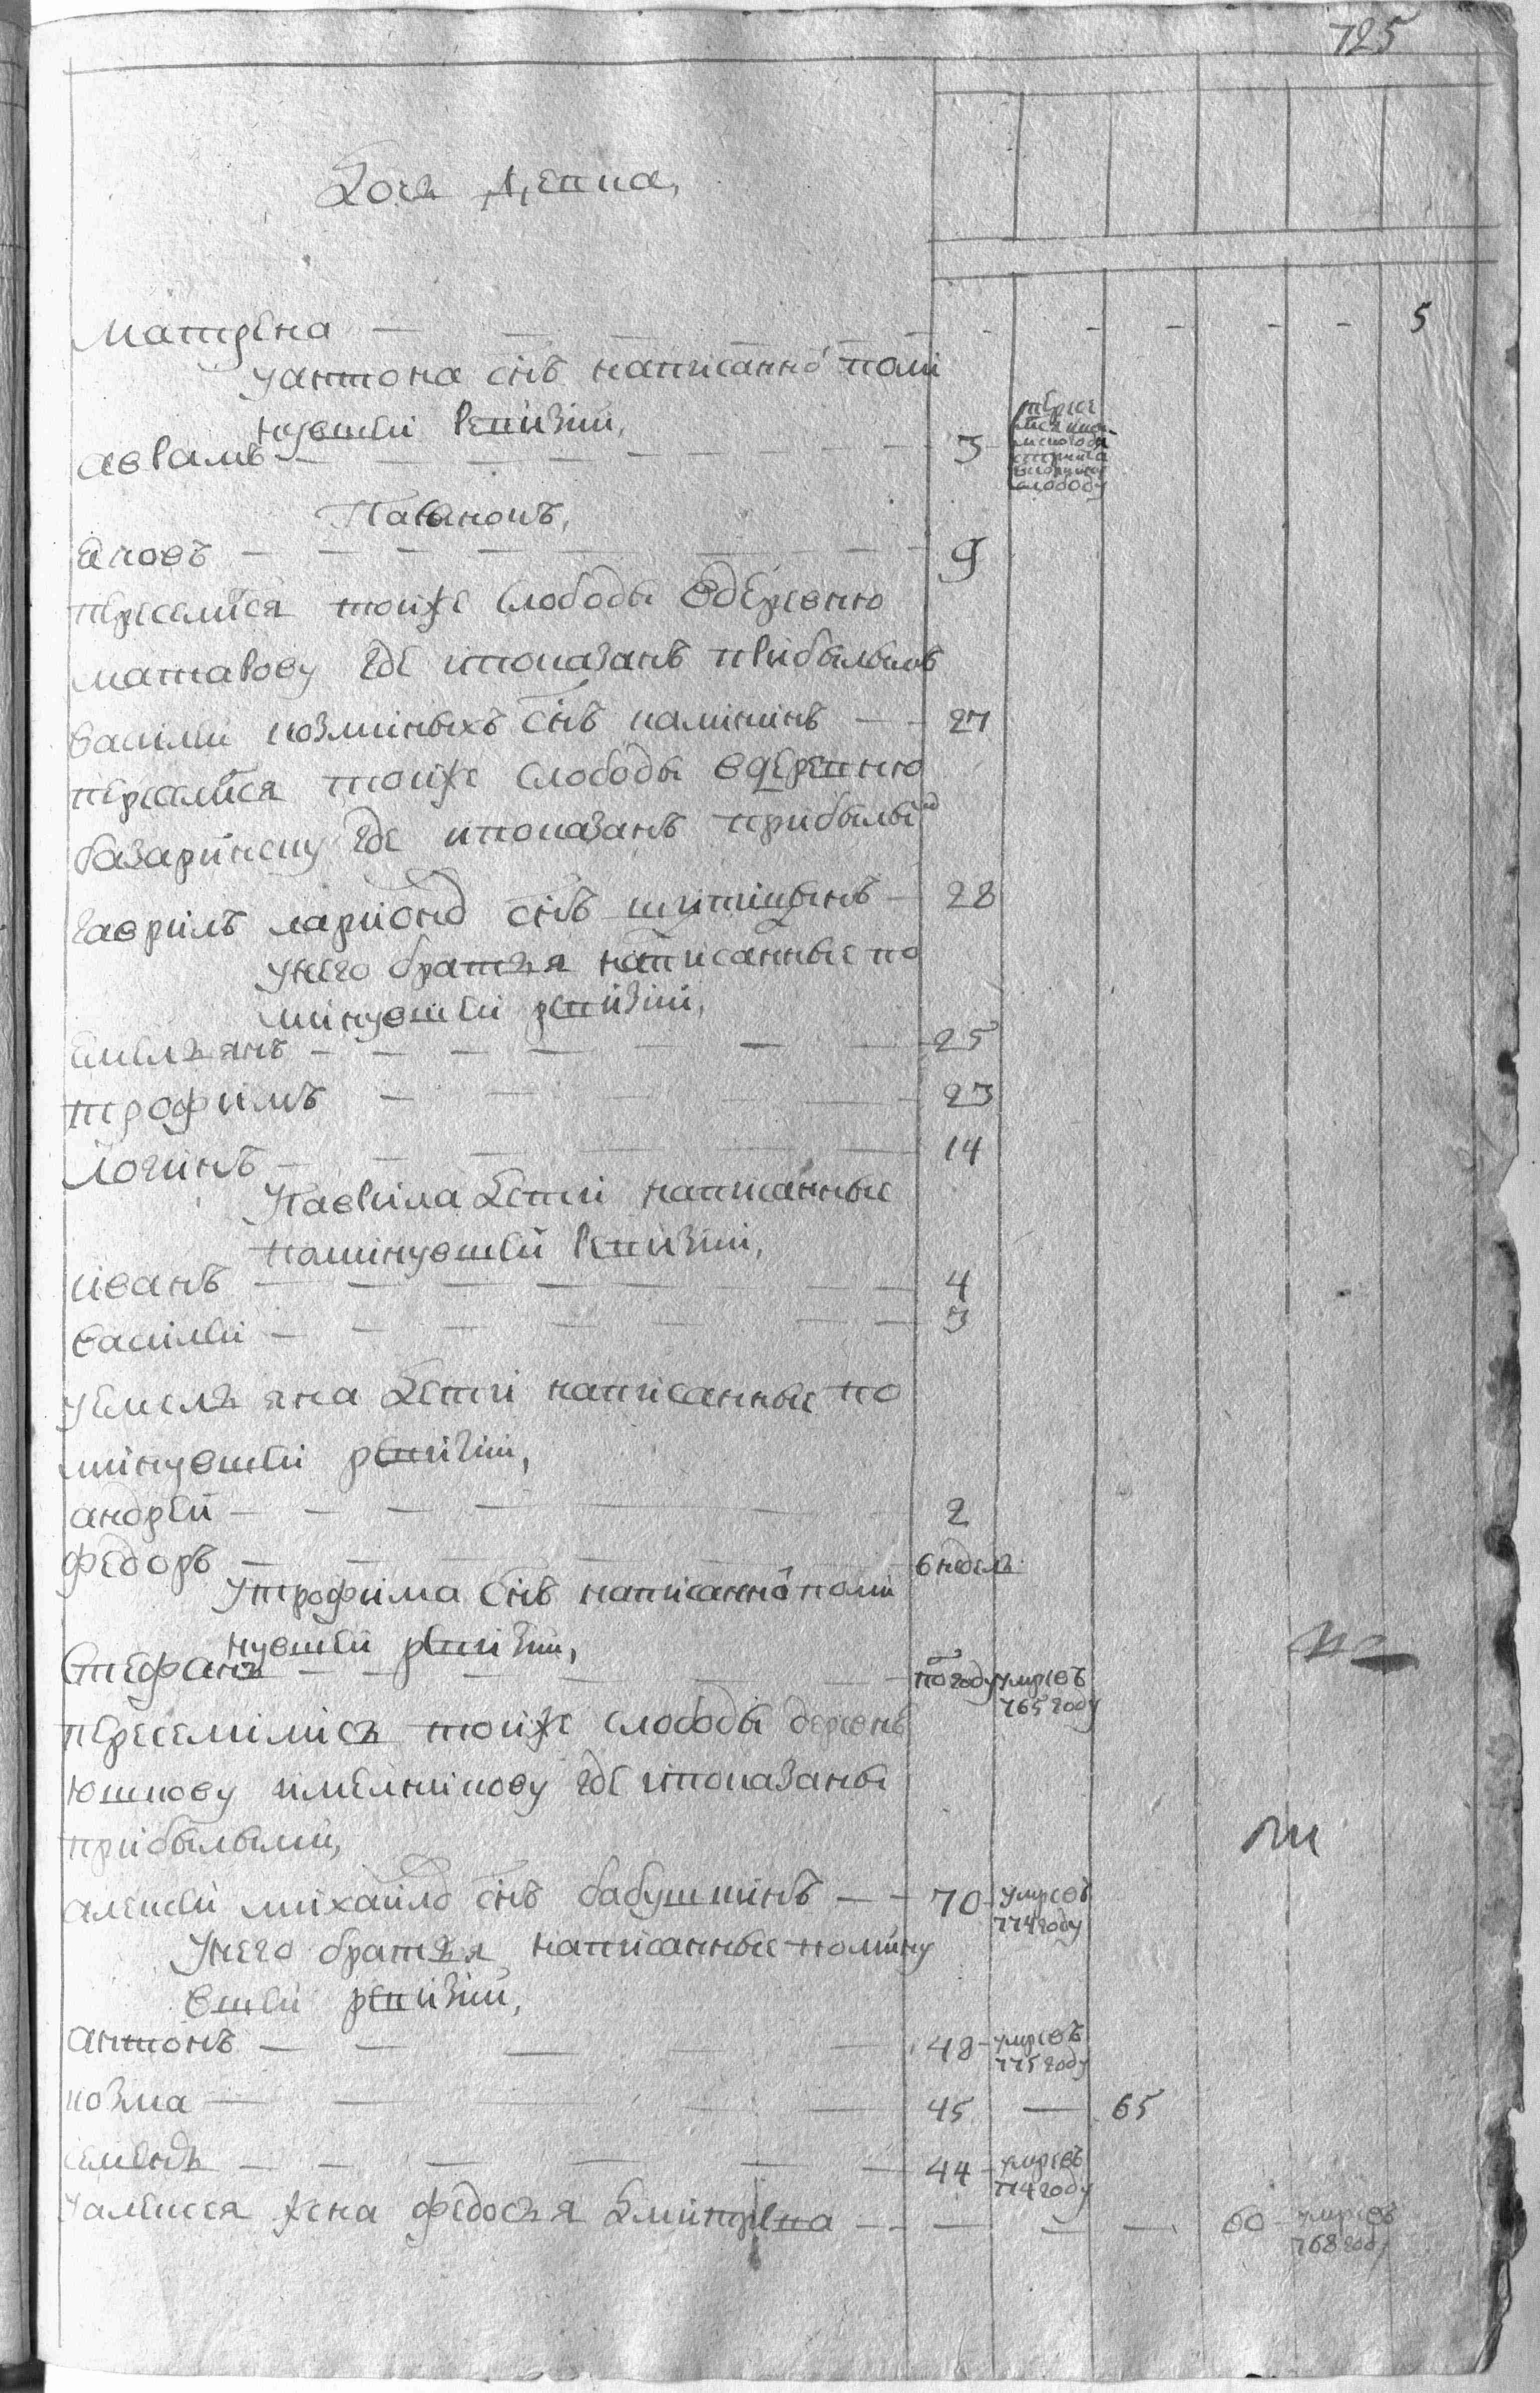 725
дочь девка,
матрена — — — — 5
у антона снъ написанно поми
нувшеи ревизии,
аврамъ — — — 3 пересе
слободу
яковъ — — — 9
переселися тоиже слободы вдеревню
где ипоказанъ прибылымъ
василеи козминыхъ снъ калининъ — 27
переселися тоиже слободы вдеревню
где ипоказанъ прибылы
гаврилъ ларионо снъ — 28
унего братья написанные по
минувшеи ревизии,
емельянъ — — — 25
трофимъ — — — 23
логинъ — — — 14
угаврила дети написанные
поминувшеи ревизии,
иванъ — — — 4
василеи — — — 3
уемельяна дети написанные по
минувшеи ревизии,
андреи — — — 2
федоръ — — — 6 недель
утрофима снъ написанно поми
нувшеи ревизии,
стефанъ — — — по году умревъ
765 году
переселилися тоиже слободы деревнь
юшкову имелникову где ипоказаны
прибылыми,
алексеи михаило снъ бабушкинъ — 70 умревъ
774 году
унего братья написанные помину
вшеи ревизии,
антонъ — — — 48 умревъ
775 году
козма — — — 45 — 65
семенъ — — — 44 умревъ
774 году
уалексея жена федосья дмитревна — — — 60 умревъ
768 году